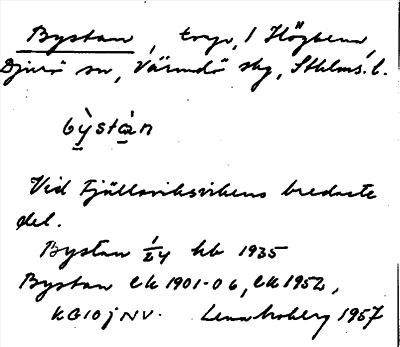 Bystan, torp, / Högbena,
Djurö sn, Värmdö skg, Sthlms. l.
bỳstàn
Vid Fjällsviksvikens bredaste
del.
Bystan 1/24 hb 1935
Bystan EK 1901-06, EK 1952,
KG 10 j NV. 1957